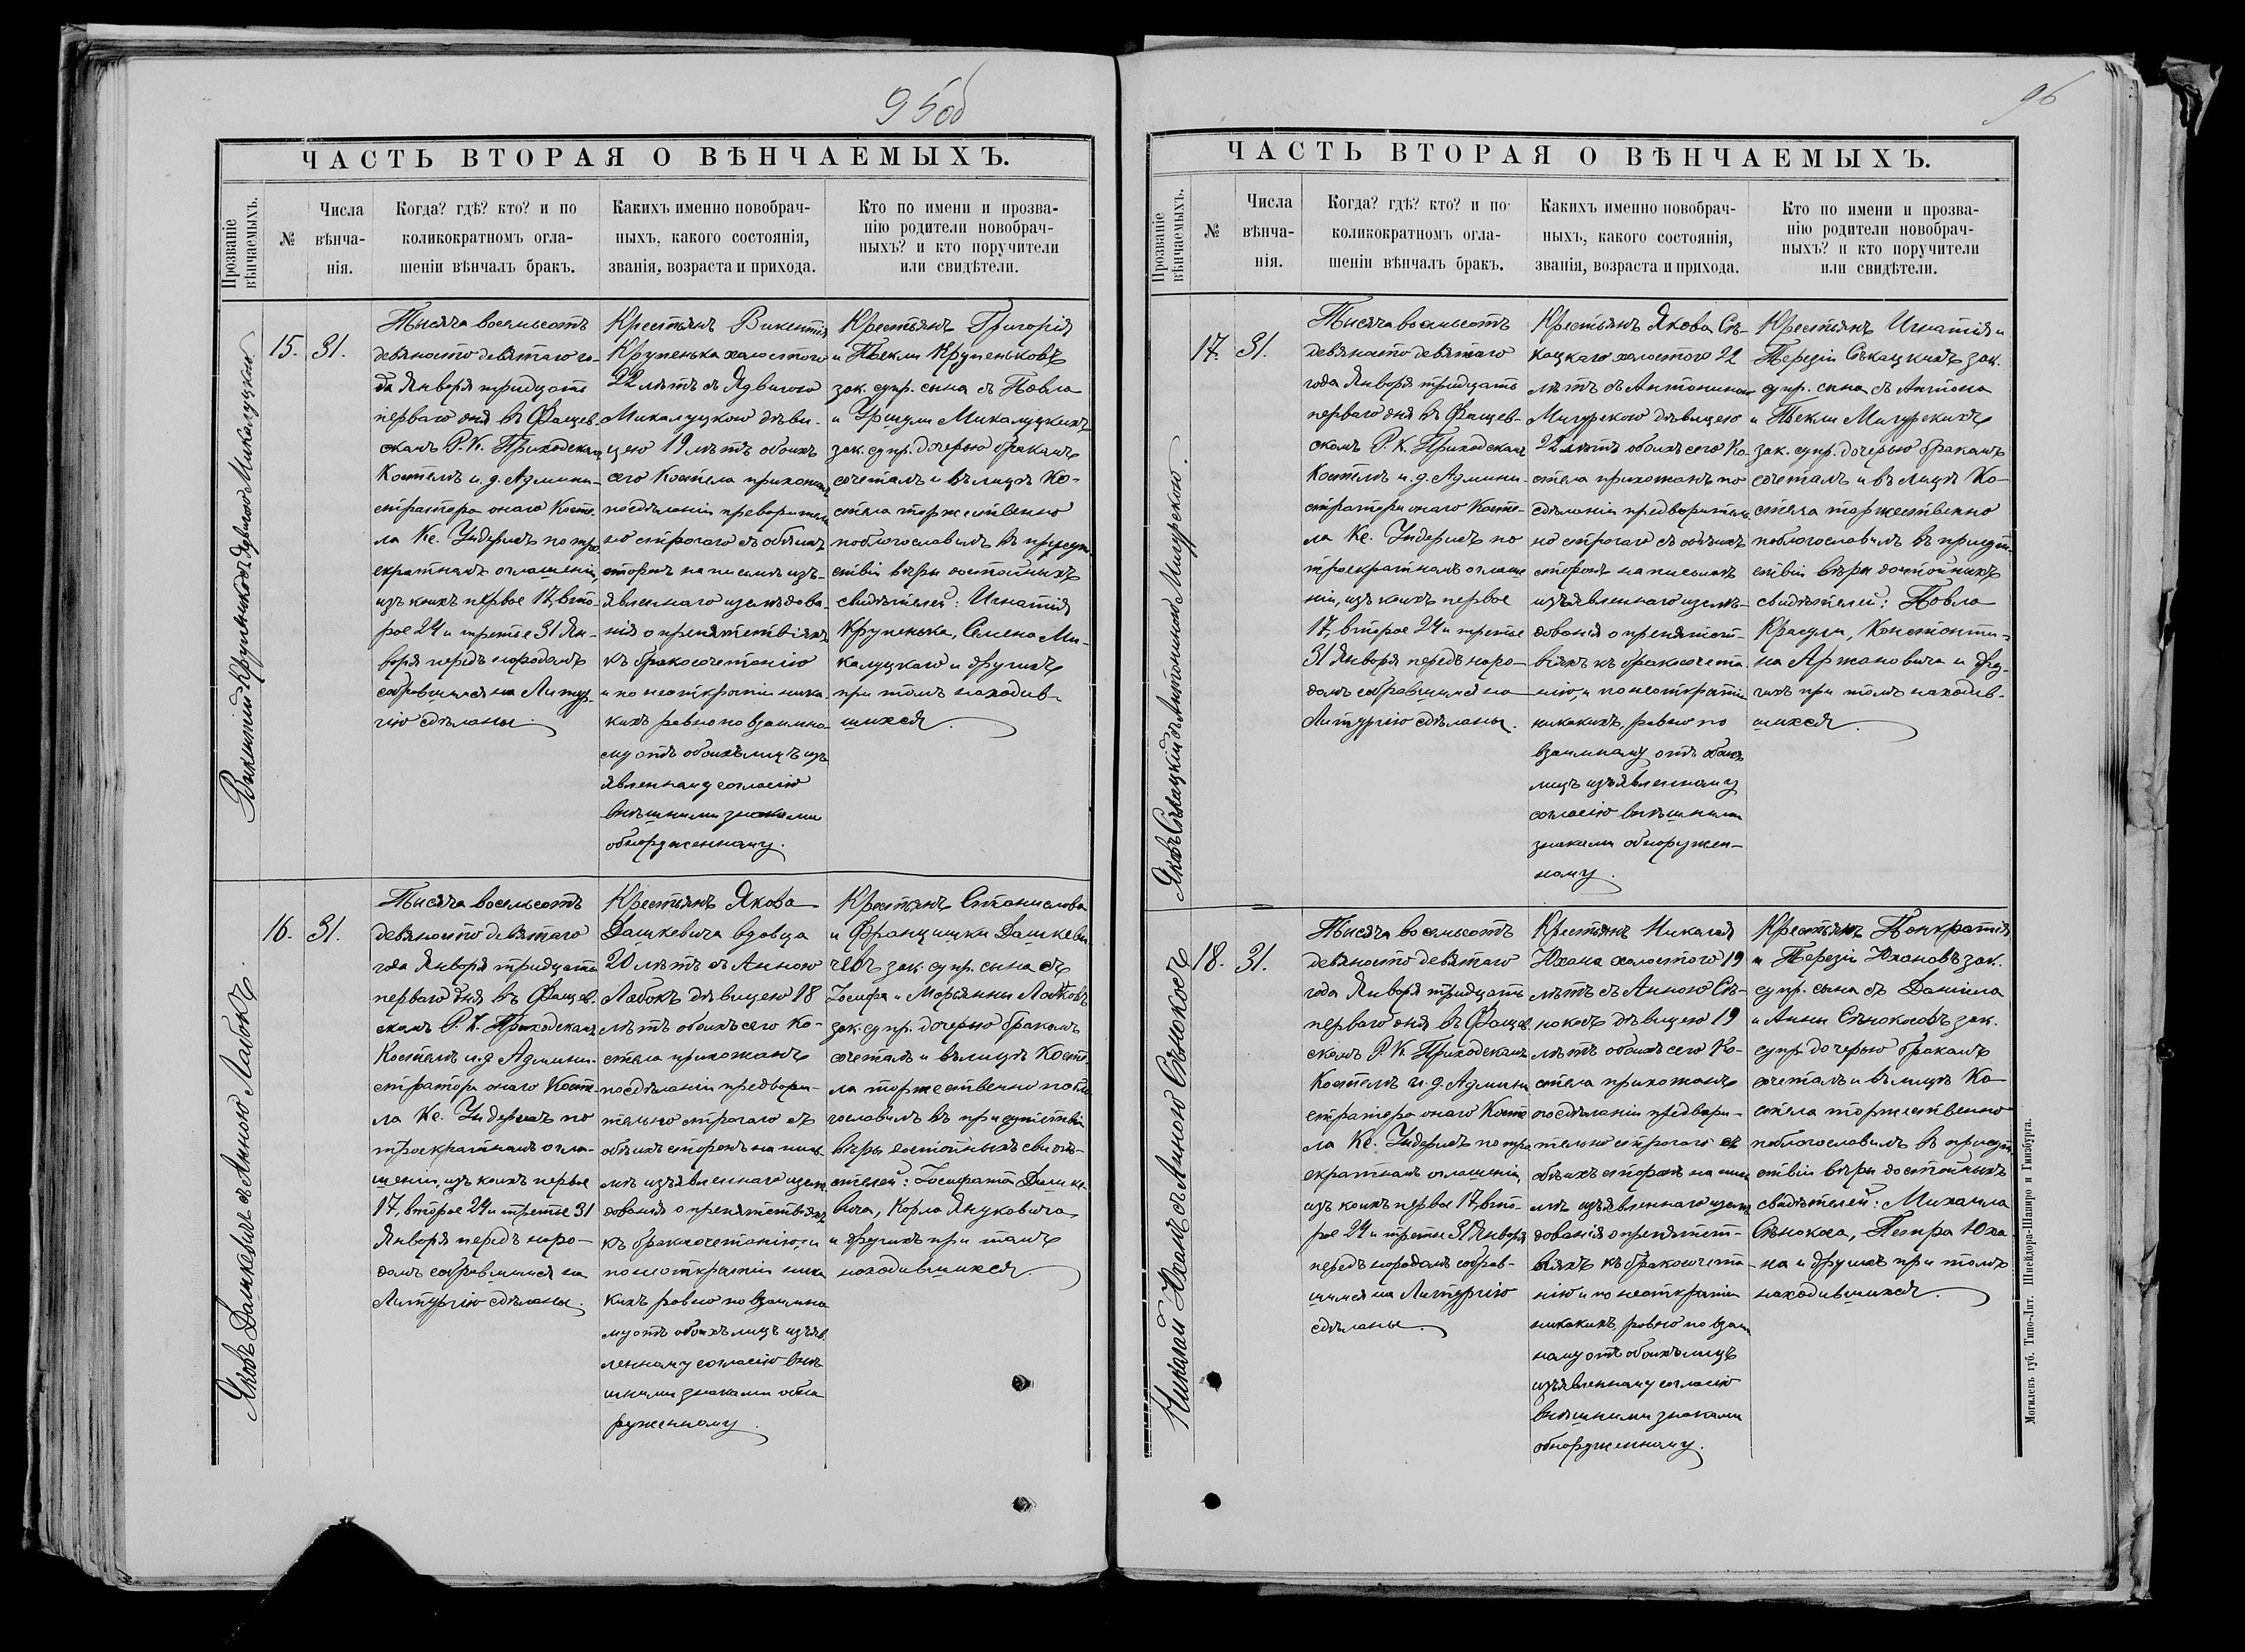 95об
ЧАСТЬ ВТОРАЯ О ВѢНЧАЕМЫХЪ.
Прозваніе
вѣнчаемыхъ.
№
Числа
вѣнча-
нія.
Когда? гдѣ? кто? и по
коликократномъ огла-
шеніи вѣнчалъ бракъ.
Какихъ именно новобрач-
ныхъ, какого состоянія,
званія, возраста и прихода.
Кто по имени и прозва-
нію родители новобрач-
ныхъ? и кто поручители
или свидѣтели.
Викентій Крупенько съ Ядвигою Микалуцкою.
15.
31.
Тысяча восемьсотъ
девяносто девятаго го-
да Января тридцать
перваго дня въ Фащев-
скомъ Р. К. Приходскомъ
Костелѣ и. д. Админи-
стратора онаго Косте-
ла Кс. Ундерисъ по тро-
екратномъ оглашеніи,
изъ коихъ первое 17, вто-
рое 24 и третье 31 Ян-
варя передъ народомъ
собравшимся на Литур-
гію сдѣланы.
Крестьянъ Викентія
Крупенька холостого
22 лѣтъ съ Ядвигою
Микалуцкою дѣви-
цею 19 лѣтъ обоихъ
сего Костела прихожанъ
по сдѣланіи предваритель
но строгаго съ обѣихъ
сторонъ на письмѣ изъ-
явленнаго изслѣдова-
нія о препятствіяхъ
къ бракосочетанію
и по неоткрытіи ника-
кихъ равно по взаимно-
му отъ обоихъ лицъ изъ
явленному согласію
внѣшними знаками
обнаруженному.
Крестьянъ Григорія
и Теклы Крупеньковъ
зак. супр. сына съ Павла
и Уршули Микалуцкихъ
зак. супр. дочерью бракомъ
сочеталъ и въ лицѣ Ко-
стела торжественно
поблагословилъ въ присут
ствіи вѣры достойныхъ
свидѣтелей: Игнатія
Крупенька, Семена Ми-
калуцкаго и другихъ
при томъ находив-
шихся.
Яковъ Дашкевичъ съ Анною Лабокъ.
16.
31.
Тысяча восемьсотъ
девяносто девятаго
года Января тридцать
перваго дня въ Фащев-
скомъ Р. К. Приходскомъ
Костелѣ и. д. Админи-
стратора онаго Косте
ла Кс. Ундерисъ по
троекратномъ огла-
шеніи, изъ коихъ первое
17, второе 24 и третье 31
Января передъ наро-
домъ собравшимся на
Литургію сдѣланы.
Крестьянъ Якова
Дашкевича вдовца
20 лѣтъ съ Анною
Лабокъ дѣвицею 18
лѣтъ обоихъ сего Ко-
стела прихожанъ
по сдѣланіи предвари-
тельно строгаго съ
обѣихъ сторонъ на пись
мѣ изъявленнаго изслѣ
дованія о препятствіяхъ
къ бракосочетанію, и
по неоткрытіи ника
кихъ равно по взаимно
му отъ обоихъ лицъ изъяв
ленному согласію внѣ
шними знаками обна
руженному.
Крестьянъ Станислава
и Францишки Дашкеви
чевъ зак. супр. сына съ
Іосифа и Маріанны Лабковъ
зак. супр. дочерью бракомъ
сочеталъ и въ лицѣ Косте
ла торжественно побла
гословилъ въ присутствіи
вѣры достойныхъ свидѣ-
телей: Іосафата Дашке-
вича, Карла Януковича
и другихъ при томъ
находившихся.
96
ЧАСТЬ ВТОРАЯ О ВѢНЧАЕМЫХЪ.
Прозваніе
вѣнчаемыхъ.
№
Числа
вѣнча-
нія.
Когда? гдѣ? кто? и по
коликократномъ огла-
шеніи вѣнчалъ бракъ.
Какихъ именно новобрач-
ныхъ, какого состоянія,
званія, возраста и прихода.
Кто по имени и прозва-
нію родители новобрач-
ныхъ? и кто поручители
или свидѣтели.
Яковъ Сѣкацкій съ Антониною Мигурскою.
17.
31.
Тысяча восемьсотъ
девяносто девятаго
года Января тридцать
перваго дня въ Фащев-
скомъ Р. К. Приходскомъ
Костелѣ и. д. Админи-
стратора онаго Косте-
ла Кс. Ундерисъ по
троекратномъ оглаше
ніи, изъ коихъ первое
17, второе 24 и третье
31 Января передъ наро-
домъ собравшимся на
Литургію сдѣланы.
Крестьянъ Якова Сѣ-
кацкаго холостого 22
лѣтъ съ Антониною
Мигурскою дѣвицею
22 лѣтъ обоихъ сего Ко-
стела прихожанъ по
сдѣланіи предваритель
но строгаго съ обѣихъ
сторонъ на письмѣ
изъявленнаго изслѣ-
дованія о препятст-
віяхъ къ бракосочета-
нію, и по неоткрытіи
никакихъ, равно по
взаимному отъ обоихъ
лицъ изъявленному
согласію внѣшними
знаками обнаружен-
ному.
Крестьянъ Игнатія и
Терезіи Сѣкацкихъ зак.
супр. сына съ Антона
и Теклы Мигурскихъ
зак. супр. дочерью бракомъ
сочеталъ и въ лицѣ Ко-
стела торжественно
поблагословилъ въ присут-
ствіи вѣры достойныхъ
свидѣтелей: Павла
Красули, Константи-
на Аржановича и дру-
гихъ при томъ находив-
шихся.
Николай Юханъ съ Анною Сѣнокосъ
18.
31.
Тысяча восемьсотъ
девяносто девятаго
года Января тридцать
перваго дня въ Фащев
скомъ Р. К. Приходскомъ
Костелѣ и. д. Админи
стратора онаго Косте
ла Кс. Ундерисъ по тро
екратномъ оглашеніи,
изъ коихъ первое 17, вто-
рое 24 и третье 31 Января
передъ народомъ собрав-
шимся на Литургію
сдѣланы.
Крестьянъ Николая
Юхана холостого 19
лѣтъ съ Анною Сѣ-
нокосъ дѣвицею 19
лѣтъ обоихъ сего Ко-
стела прихожанъ
по сдѣланіи предвари-
тельно строгаго съ
обѣихъ сторонъ на пись
мѣ изъявленнаго изслѣ
дованія о препятст-
віяхъ къ бракосочета-
нію и по неоткрытіи
никакихъ, равно по взаи
мному отъ обоихъ лицъ
изъявленному согласію
внѣшними знаками
обнаруженному.
Крестьянъ Панкратія
и Терезіи Юхановъ зак.
супр. сына съ Даніила
и Анны Сѣнокосовъ зак.
супр. дочерью бракомъ
сочеталъ и въ лицѣ Ко
стела торжественно
поблагословилъ въ присут
ствіи вѣры достойныхъ
свидѣтелей: Михаила
Сѣнокоса, Петра Юха
на и другихъ при томъ
находившихся.
Могилевъ губ. Типо-Лит. Шнейдора-Шапиро и Гинзбурга.